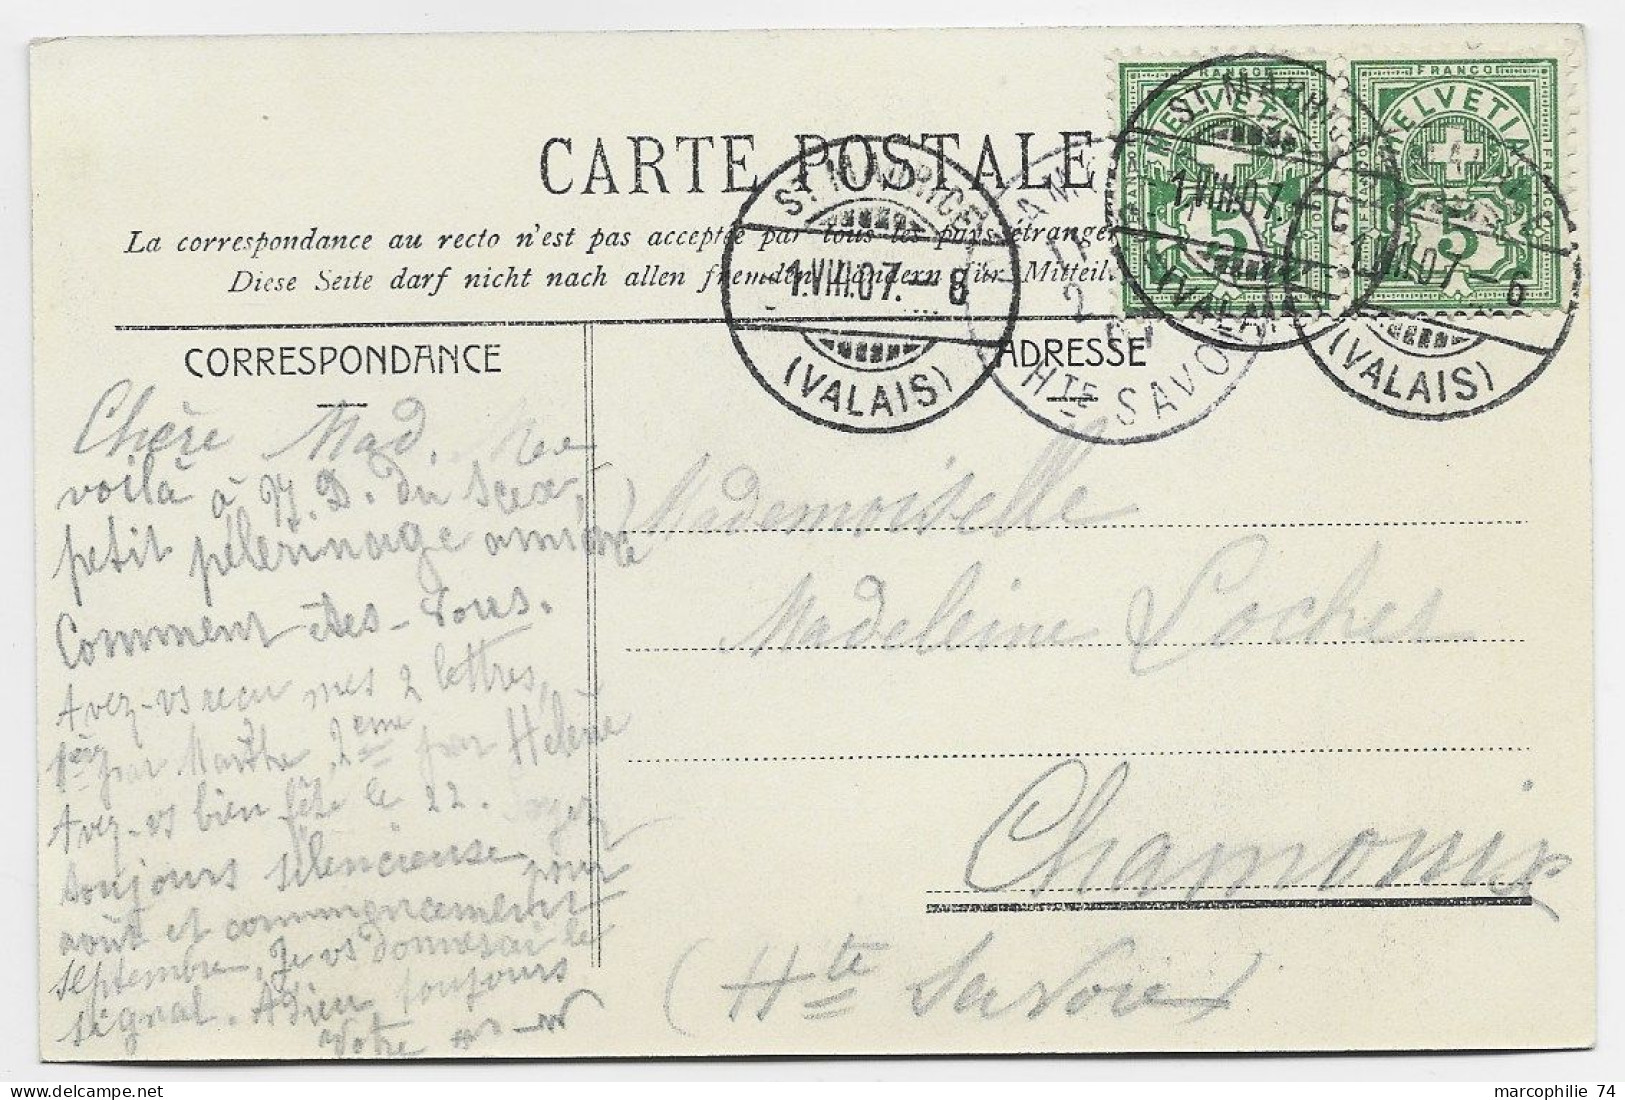 CARTE POSTALE
La correspondance au recto n'est pas acceptée par tous les pays étranger
Diese Seite darf nicht nach allen fremden Ländern für Mitteil
FRANCO
HELVETIA
5
FRANCO
HELVETIA
5
ST MAURICE
-1.VIII.07.-8
(VALAIS)
ST MAURICE
-1.VIII.07.
(VALAIS)
1.VIII.07-6
(VALAIS)
HTE SAVOIE
CORRESPONDANCE
ADRESSE
Chère Mad. Me
voilà à N. D. du Scex,
petit pélerinage
Comment êtes-vous.
Avez-vs reçu mes 2 lettres,
1ère par Marthe, 2eme par Hélène
Avez-vs bien fêté le 22. Soyez
toujours silencieuse pour
août et commencement
septembre. Je vs donnerai le
signal. Adieu toujours
Votre
Mademoiselle
Madeleine Loches
Chamonix
(Hte Savoie)
marcophilie 74